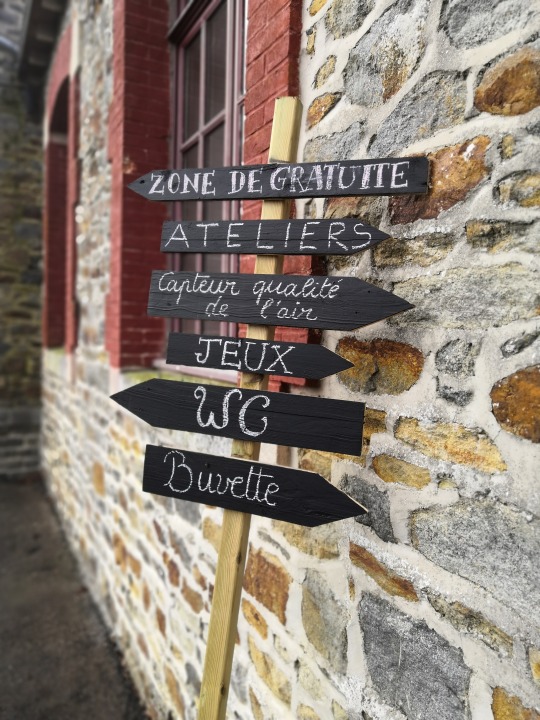 ZONE DE GRATUITE
ATELIERS
Capteur qualité
de l'air
JEUX
WC
Buvette